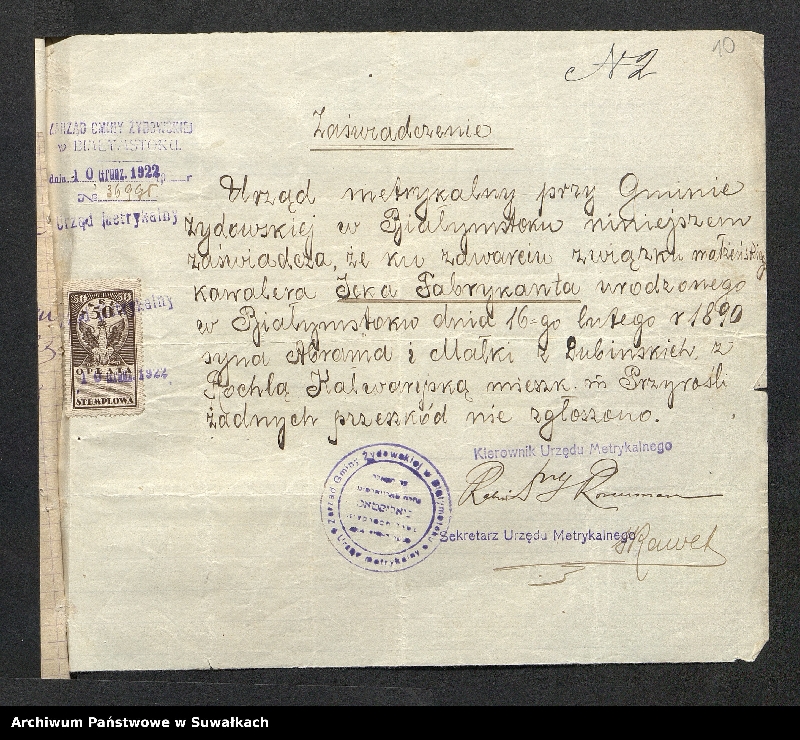 10
N 2
Zaświadczenie
ZARZĄD GMINY ŻYDOWSKIEJ
w BIAŁYMSTOKU.
dnia 10 Grudz. 1922 r
№ 36995
Urząd metrykalny
Urząd metrykalny przy Gminie
Żydowskiej w Białymstoku niniejszem
zaświadcza, że ku zawarciu związku małżeńskiego
kawalera Icka Fabrykanta urodzonego
w Białymstoku dnia 16-go lutego r 1890
syna Abrama i Małki z Lubińskich, z
Rochlą Kalwaryjską mieszk. m Przyrośli
żadnych przeszkód nie zgłoszono.
50 50
50
OPŁATA
STEMPLOWA
1922
Kierownik Urzędu Metrykalnego
Rabin
Sekretarz Urzędu Metrykalnego
Zarząd Gminy Żydowskiej w Białymstoku
Urząd metrykalny
Archiwum Państwowe w Suwałkach